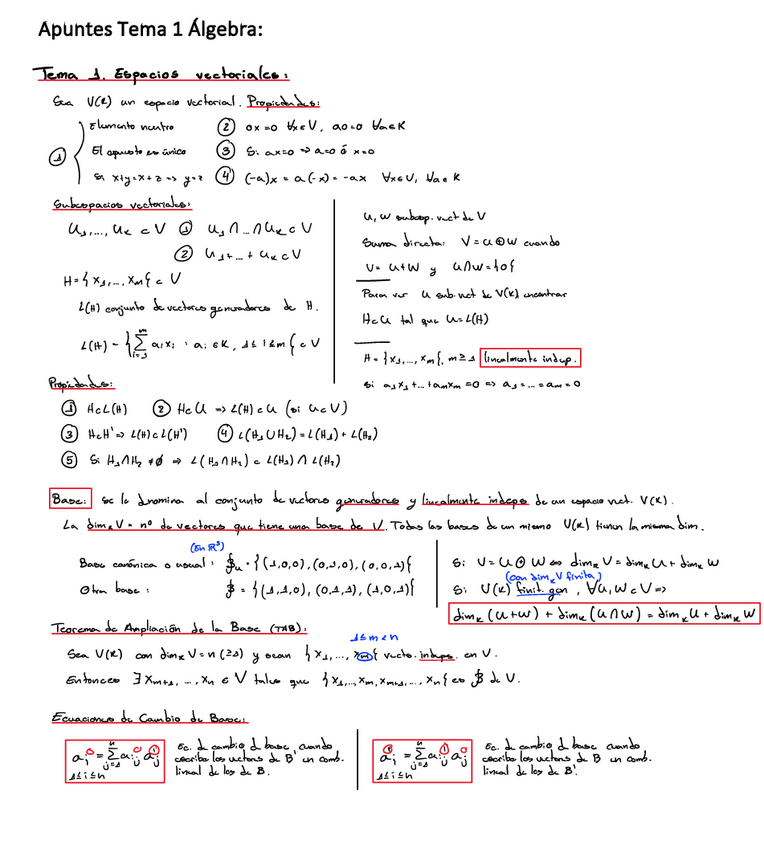 Apuntes Tema 1 Álgebra:
Tema 1. Espacios vectoriales:
Sea V(K) un espacio vectorial. Propiedades:
① Elemento neutro
El opuesto es único
Si x+y=x+z => y=z
② 0x=0 ∀x∈V, a0=0 ∀a∈K
③ Si ax=0 => a=0 ó x=0
④ (-a)x = a(-x) = -ax ∀x∈V, ∀a∈K
Subespacios vectoriales:
U₁,..., Uₖ ⊂ V ① U₁∩...∩Uₖ ⊂ V
② U₁+...+Uₖ ⊂ V
H={x₁,..., xₘ} ⊂ V
L(H) conjunto de vectores generadores de H.
L(H) = {∑ᵢ₌₁ᵐ aᵢxᵢ : aᵢ ∈ K, 1≤i≤m} ⊂ V
U, W subesp. vect de V
Suma directa: V=U⊕W cuando
V=U+W y U∩W={0}
Para ver U sub. vect de V(K) encontrar
H⊂U tal que U=L(H)
H={x₁,..., xₘ}, m≥1 linealmente indep.
si a₁x₁+...+aₘxₘ=0 => a₁=...=aₘ=0
Propiedades:
① H⊂L(H) ② H⊂U => L(H)⊂U (si U⊂V)
③ H⊂H' => L(H)⊂L(H') ④ L(H₁∪H₂)=L(H₁)+L(H₂)
⑤ Si H₁∩H₂≠∅ => L(H₁∩H₂)⊂L(H₁)∩L(H₂)
Base: se le denomina al conjunto de vectores generadores y linealmente indeps de un espacio vect. V(K).
La dimₖV = nº de vectores que tiene una base de V. Todas las bases de un mismo V(K) tienen la misma dim.
(En ℝ³)
Base canónica o usual: 𝓑ᵤ = {(1,0,0), (0,1,0), (0,0,1)}
Otra base: 𝓑 = {(1,1,0), (0,1,1), (1,0,1)}
Si V=U⊕W <=> dimₖV=dimₖU+dimₖW
(con dimₖV finita)
Si V(K) finit. gen, ∀U,W⊂V =>
dimₖ(U+W) + dimₖ(U∩W) = dimₖU + dimₖW
Teorema de Ampliación de la Base (TAB):
1≤m<n
Sea V(K) con dimₖV=n (≥1) y sean {x₁,..., xₘ} vects. indeps. en V.
Entonces ∃xₘ₊₁, ..., xₙ ∈ V tales que {x₁,...,xₘ, xₘ₊₁,..., xₙ} es 𝓑 de V.
Ecuaciones de Cambio de Base:
aᵢ = ∑ⱼ₌₁ⁿ aᵢⱼ aⱼ'
1≤i≤n
Ec. d cambio d base, cuando
escribo los vectores de B' en comb.
lineal de los de B.
aᵢ' = ∑ⱼ₌₁ⁿ aᵢⱼ' aⱼ
1≤i≤n
Ec. d cambio d base cuando
escribo los vectores de B en comb.
lineal de los de B'.